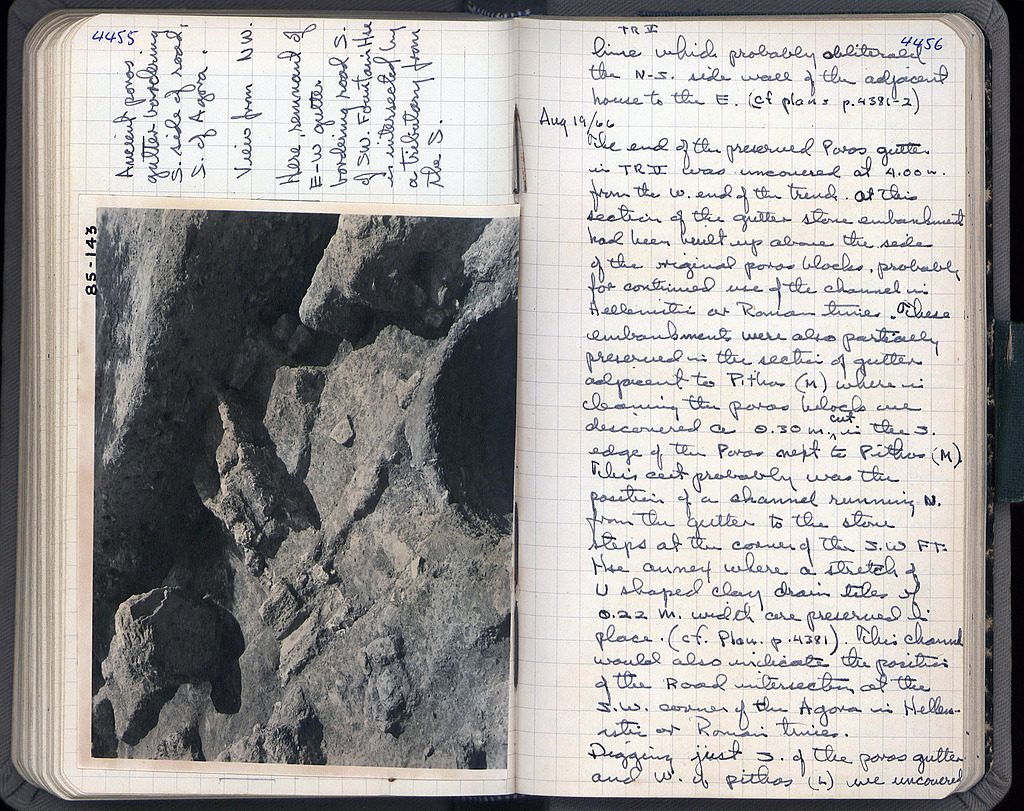 4455
Ancient poros
gutter bordering
S. side of road,
S. of Agora.
View from NW.
Here, remnant of
E-W gutter
bordering road S.
of SW. Fountain Hse
is intersected by
a tributary from
the S.
85-143
TR II
4456
line which probably obliterated
the N-S. side wall of the adjacent
house to the E. (cf plans p.4381-2)
Aug 19/66
The end of the preserved Poros gutter
in TR II was uncovered at 4.00 m.
from the W. end of the trench. At this
section of the gutter stone embankment
had been built up above the side
of the original poros blocks, probably
for continued use of the channel in
Hellenistic or Roman times. These
embankments were also partially
preserved in the section of gutter
adjacent to Pithos (M) where in
cleaning the poros blocks we
descovered a 0.30 m. cut in the S.
edge of the Poros next to Pithos (M).
This cut probably was the
position of a channel running N.
from the gutter to the stone
steps at the corner of the S.W FT.
Hse annex where a stretch of
U shaped clay drain tiles of
0.22 m. width are preserved in
place. (cf. Plan. p.4381). This channel
would also indicate the position
of the Road intersection at the
S.W. corner of the Agora in Hellen-
istic or Roman times.
Digging just S. of the poros gutter
and W. of pithos (L) we uncovered